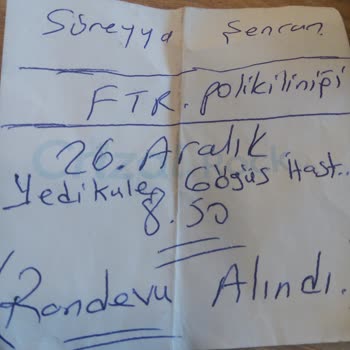 Süreyya Şencan
FTR. polikiliniği
26. Aralık
Yedikule Göğüs Hast..
8.50
Randevu Alındı.